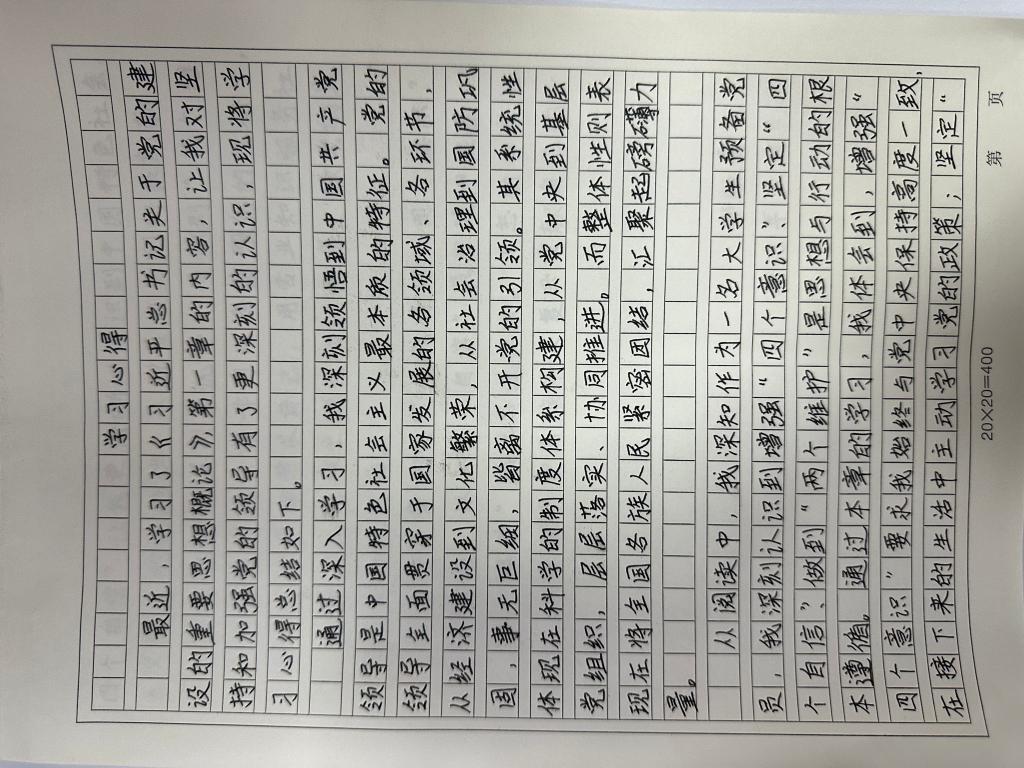 学习心得
最近，学习了《习近平总书记关于党的建
设的重要思想概论》第一章的内容，让我对坚
持和加强党的领导有了更深刻的认识，现将学
习心得总结如下。
通过深入学习，我深刻领悟到中国共产党
领导是中国特色社会主义最本质的特征。党的
领导全面贯穿于国家发展的各领域、各环节，
从经济建设到文化繁荣，从社会治理到国防巩
固，事无巨细，皆离不开党的引领。其系统性
体现在科学的制度体系构建，从党中央到基层
党组织，层层落实、协同推进。而整体性则表
现在将全国各族人民紧密团结，汇聚起磅礴力
量。
从阅读中，我深知作为一名大学生预备党
员，我深刻认识到增强“四个意识”、坚定“四
个自信”、做到“两个维护”是思想与行动的根
本遵循。通过本章的学习，我体会到，增强“
四个意识”要求我始终与党中央保持高度一致，
在接下来的生活中主动学习党的政策；坚定“
20×20=400
第 页